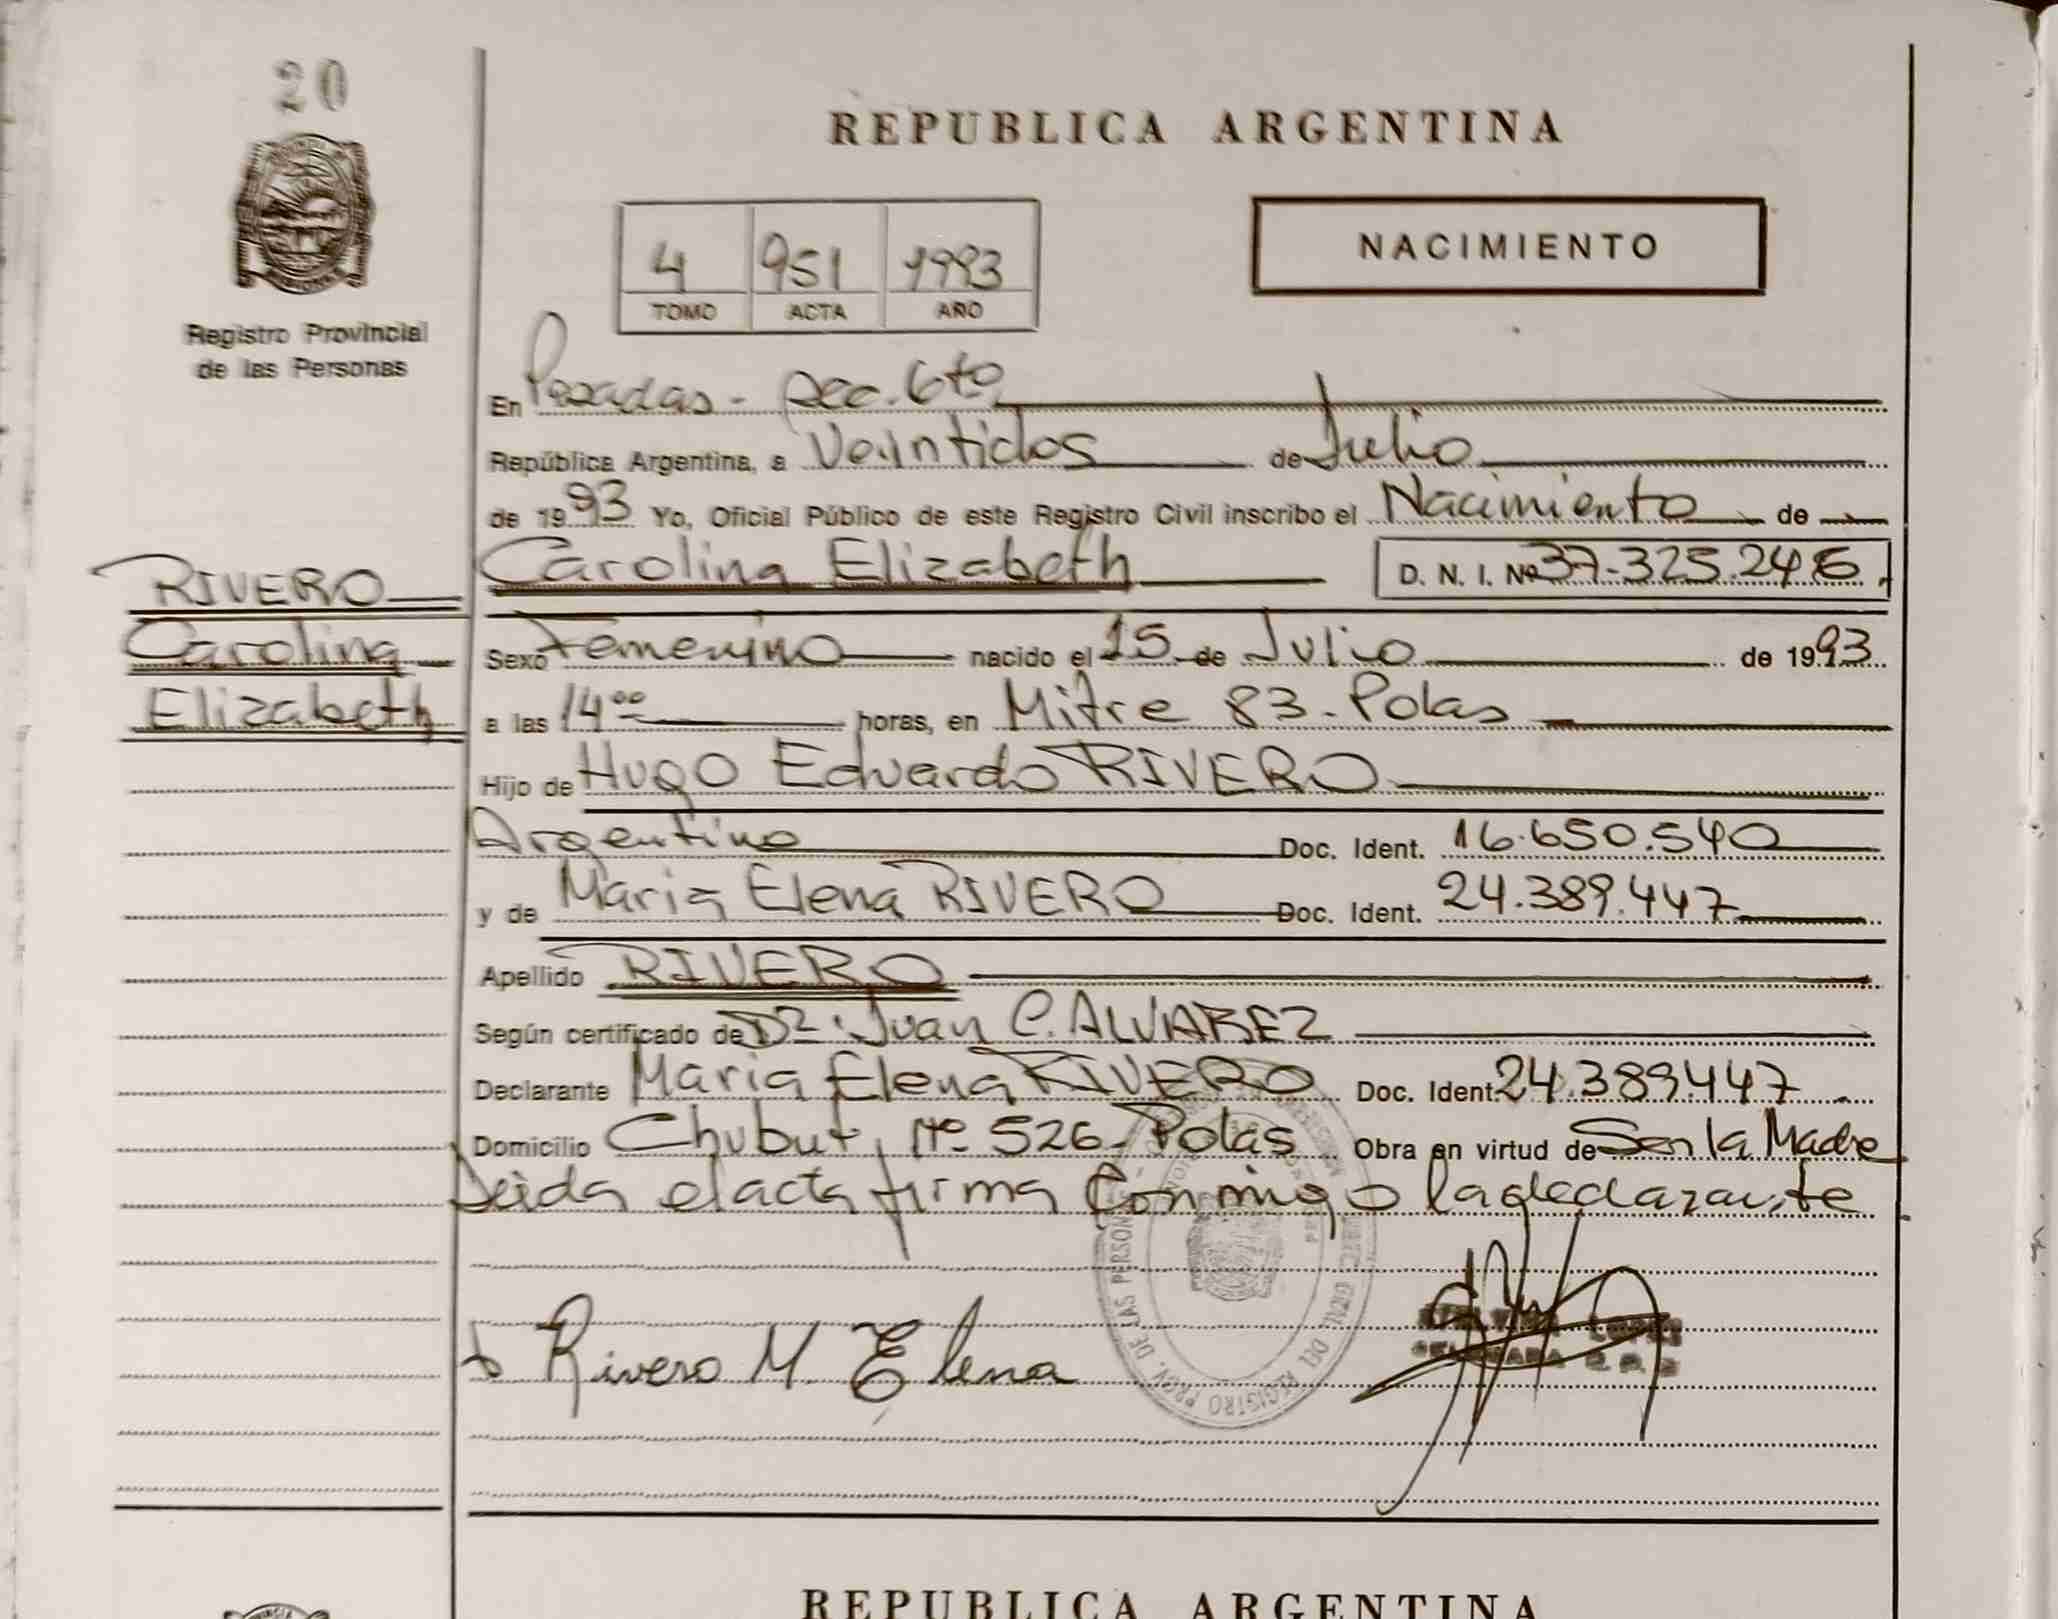 20
REPUBLICA ARGENTINA
4 951 1993
TOMO ACTA AÑO
NACIMIENTO
Registro Provincial
de las Personas
En Posadas - Sec. 6ta
República Argentina, a Veintidos de Julio
de 1993 Yo, Oficial Público de este Registro Civil inscribo el Nacimiento de
RIVERO
Carolina
Elizabeth
Carolina Elizabeth D. N. I. Nº 37.325.246
Sexo Femenino nacido el 15 de Julio de 1993
a las 14⁰⁰ horas, en Mitre 83 - Pdas
Hijo de Hugo Eduardo RIVERO
Argentino Doc. Ident. 16.650.540
y de Maria Elena RIVERO Doc. Ident. 24.389.447
Apellido RIVERO
Según certificado de Dr. Juan C. ALVAREZ
Declarante Maria Elena RIVERO Doc. Ident. 24.389.447
Domicilio Chubut Nº 526 - Pdas Obra en virtud de Ser la Madre
Leida el acta firma Conmigo la declarante
Rivero M. Elena
REGISTRO PROV. DE LAS PERSONAS
REPUBLICA ARGENTINA